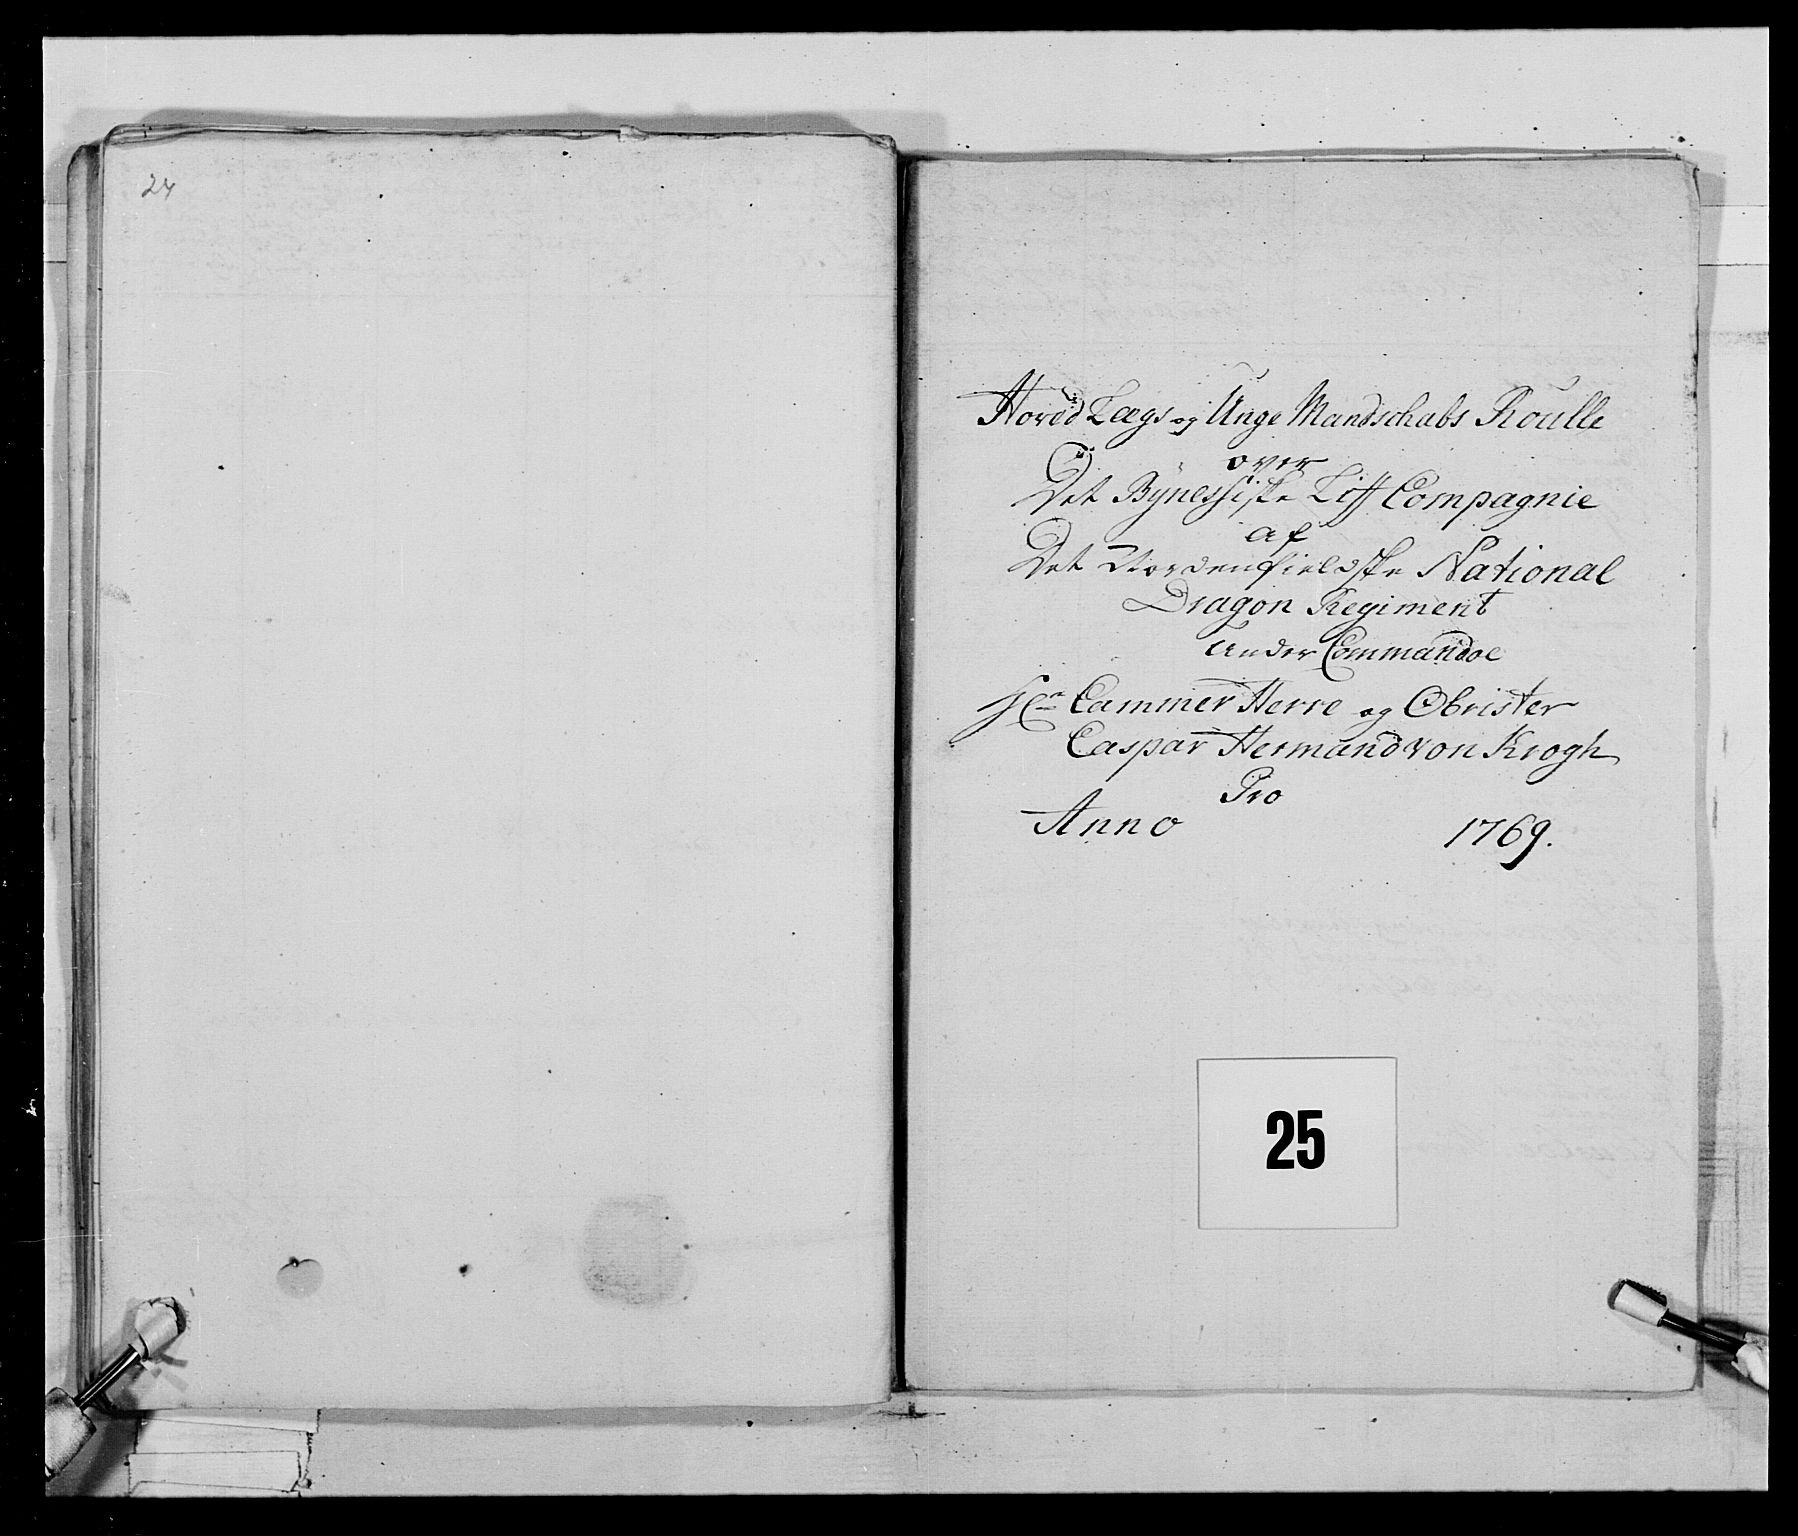 24
Hoved Lægs og Unge Mandschabs Roulle
over
Det Bynessiske Liff Compagnie
af
Det Nordenfieldske National
Dragon Regiment
under Commandoe
Hr Cammer Herre og Obrister
Caspar Hermand von Krogh
Pro
Anno 1769.
25